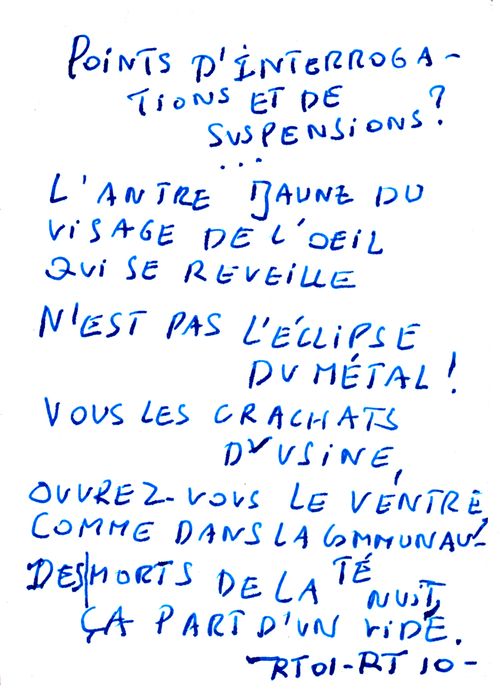 POINTS D'INTERROGA-
TIONS ET DE
SUSPENSIONS?
...
L'ANTRE JAUNE DU
VISAGE DE L'OEIL
QUI SE REVEILLE
N'EST PAS L'ÉCLIPSE
DU MÉTAL!
VOUS LES CRACHATS
D'USINE,
OUVREZ-VOUS LE VENTRE
COMME DANS LA COMMUNAU-
TÉ
DES MORTS DE LA NUIT,
ÇA PART D'UN VIDE.
RT01-RT 10-